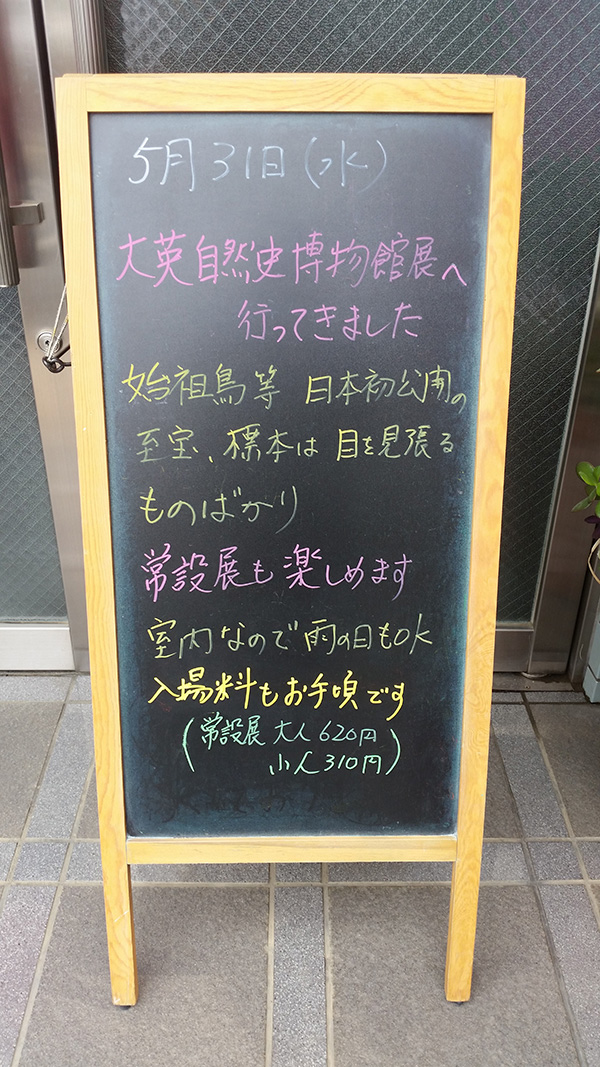 5月31日(水)
大英自然史博物館展へ
行ってきました
始祖鳥等 日本初公開の
至宝、標本は 目を見張る
ものばかり
常設展も楽しめます
室内なので雨の日もOK
入場料もお手頃です
(常設展 大人620円
小人310円)